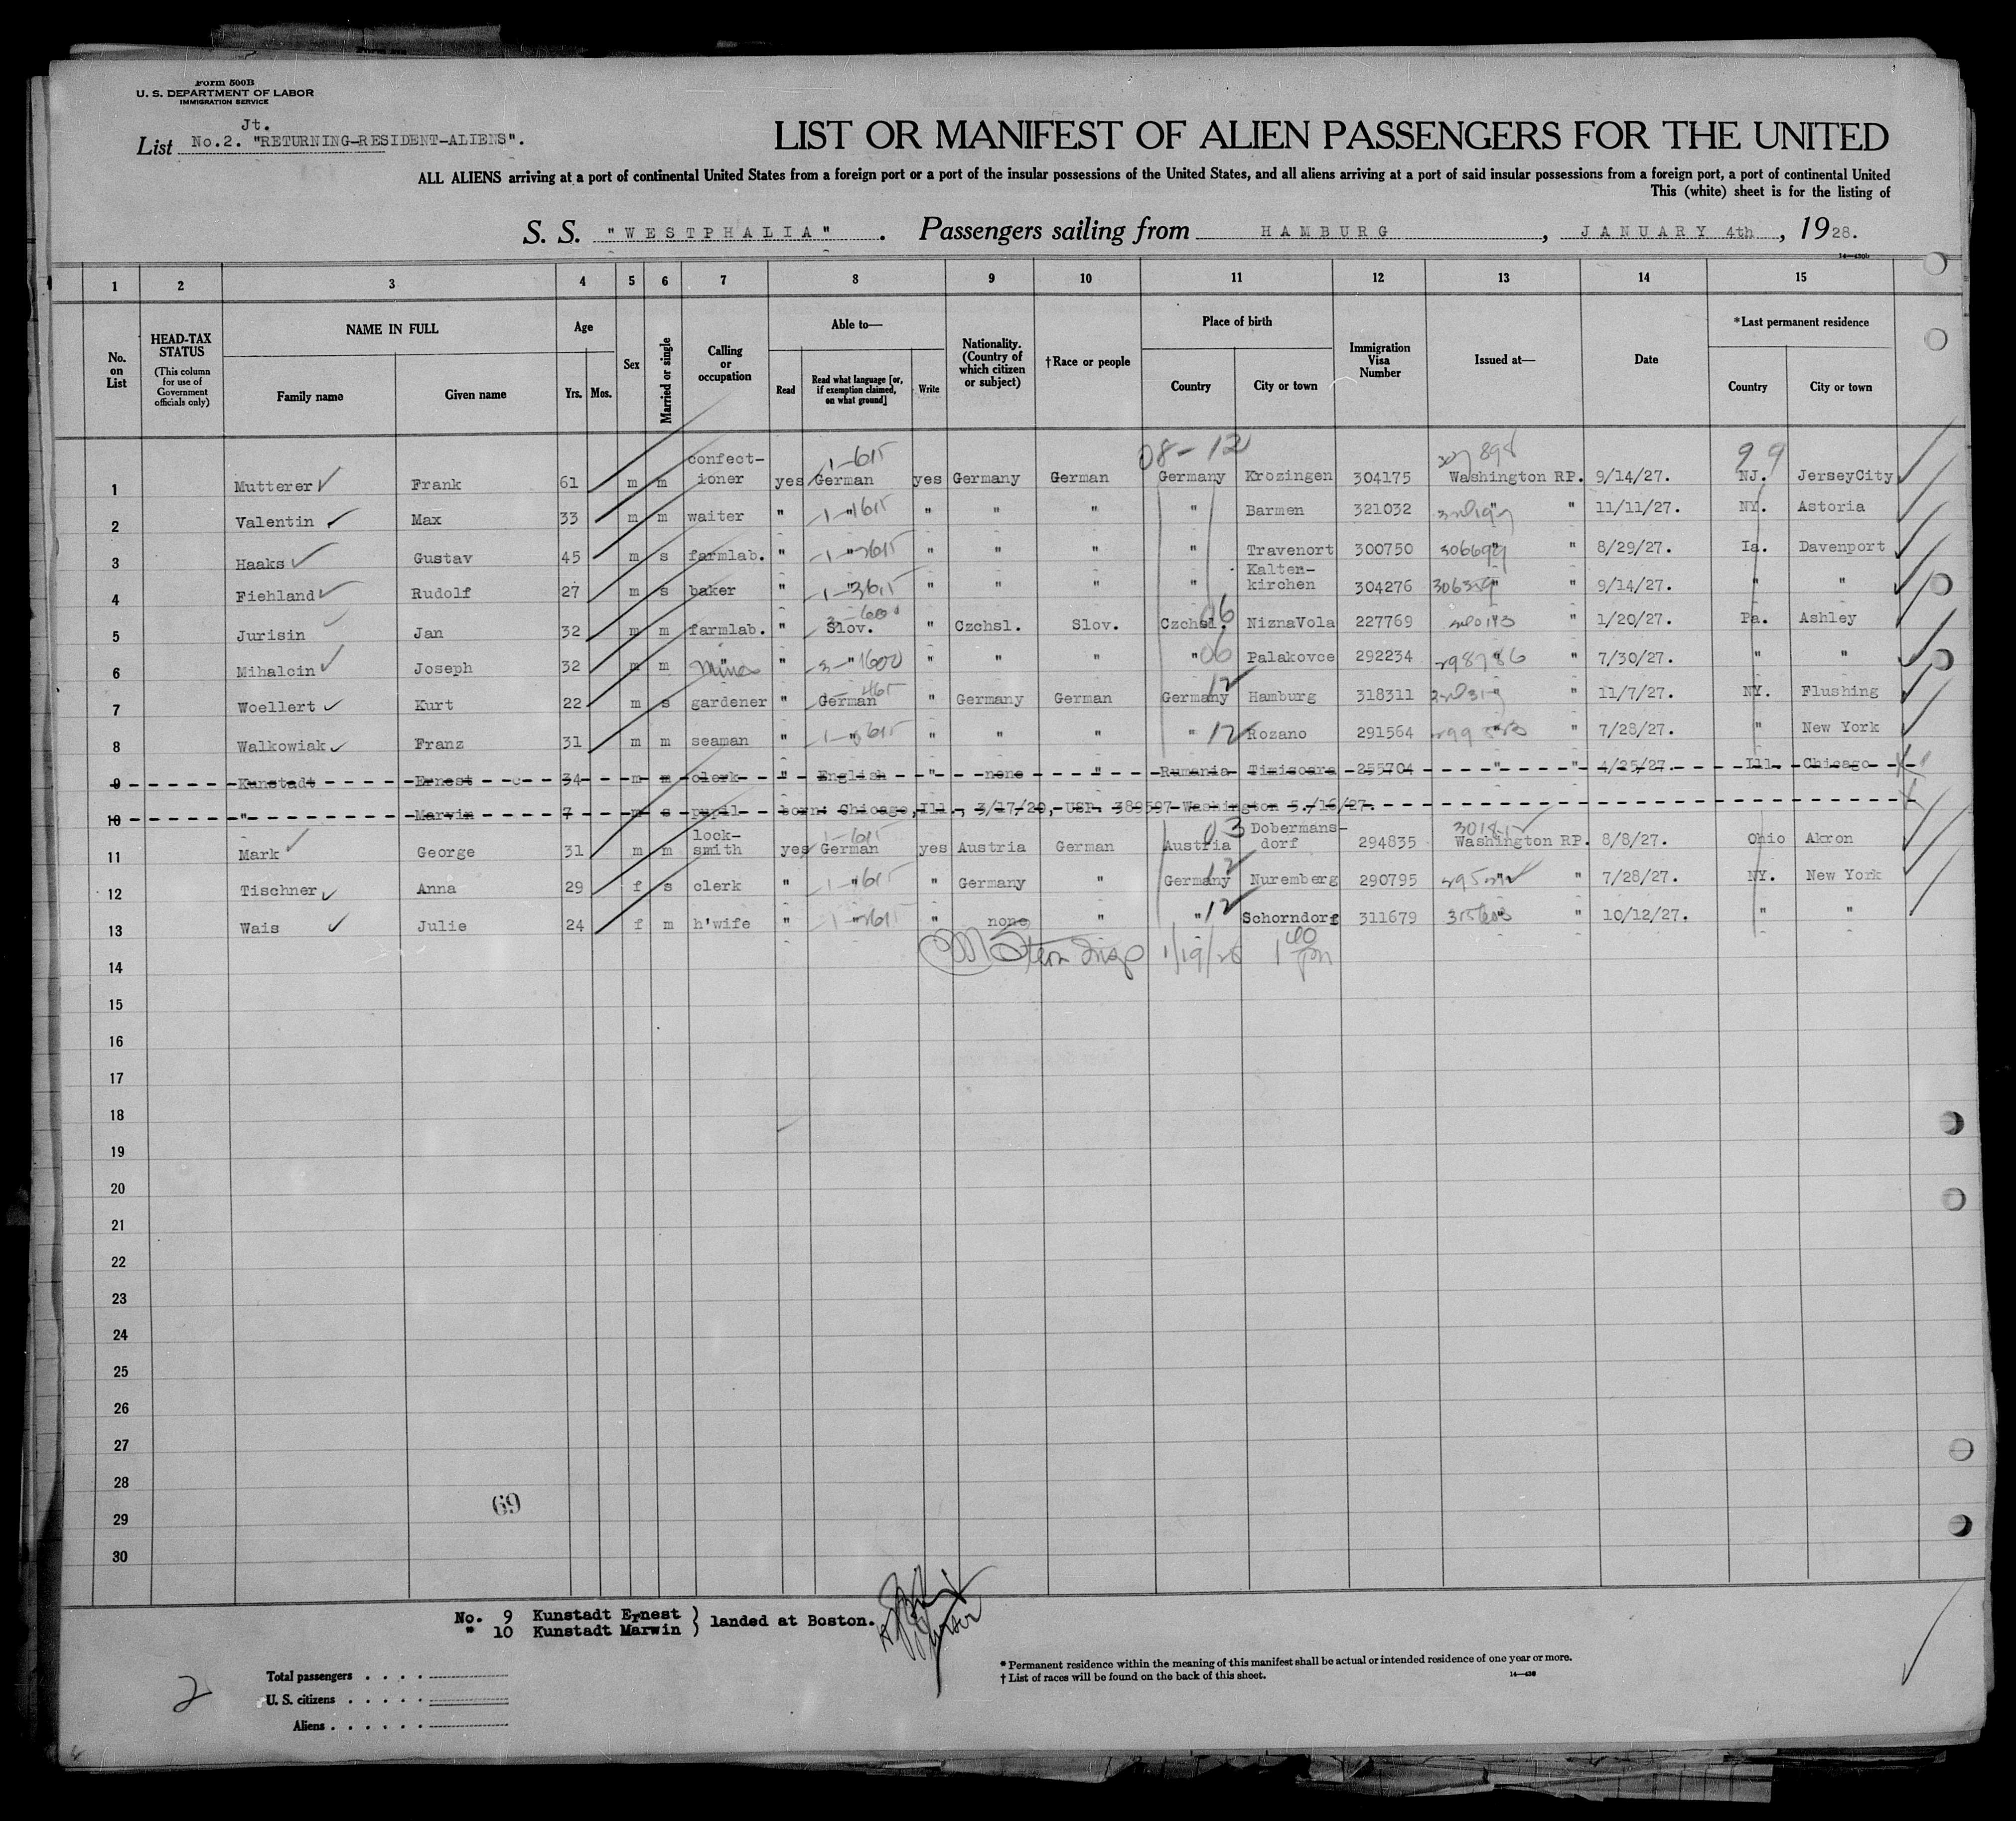 Form 500B
U. S. DEPARTMENT OF LABOR
IMMIGRATION SERVICE
Jt.
List No.2. "RETURNING-RESIDENT-ALIENS".
LIST OR MANIFEST OF ALIEN PASSENGERS FOR THE UNITED
ALL ALIENS arriving at a port of continental United States from a foreign port or a port of the insular possessions of the United States, and all aliens arriving at a port of said insular possessions from a foreign port, a port of continental United
This (white) sheet is for the listing of
S. S. "WESTPHALIA". Passengers sailing from HAMBURG, JANUARY 4th, 1928.
1 2 3 4 5 6 7 8 9 10 11 12 13 14 15
No. on List
HEAD-TAX STATUS (This column for use of Government officials only)
NAME IN FULL Family name Given name
Age Yrs. Mos.
Sex
Married or single
Calling or occupation
Able to— Read Read what language [or, if exemption claimed, on what ground] Write
Nationality. (Country of which citizen or subject)
†Race or people
Place of birth Country City or town
Immigration Visa Number
Issued at—
Date
*Last permanent residence Country City or town
08-12 99
1 Mutterer Frank 61 m m confect-ioner yes German 1-615 yes Germany German Germany Krozingen 304175 Washington RP. 9/14/27. NJ. JerseyCity
2 Valentin Max 33 m m waiter " " " " " " Barmen 321032 " " 11/11/27. NY. Astoria
3 Haaks Gustav 45 m s farmlab. " " " " " " Travenort 300750 " " 8/29/27. Ia. Davenport
4 Fiehland Rudolf 27 m s baker " " " " " " Kalten-kirchen 304276 " " 9/14/27. " "
5 Jurisin Jan 32 m m farmlab. " Slov. " Czchsl. Slov. Czchsl. 06 NiznaVola 227769 " 1/20/27. Pa. Ashley
6 Mihalcin Joseph 32 m m " " " " " " 06 Palakovce 292234 298786 " 7/30/27. " "
7 Woellert Kurt 22 m s gardener " German " Germany German Germany 12 Hamburg 318311 " " 11/7/27. NY. Flushing
8 Walkowiak Franz 31 m m seaman " " " " " " 12 Rozano 291564 " " 7/28/27. " New York
9 Kunstadt Ernest c 34 m m clerk " English " none " Rumania Timisoara 255704 " " 4/25/27. Ill. Chicago
10 " Marvin 7 m s pupil born: Chicago,Ill., 3/17/20, USP. 389597 Washington 5./16/27.
11 Mark George 31 m m lock-smith yes German 1-615 yes Austria German Austria 03 Dobermans-dorf 294835 Washington RP. 8/8/27. Ohio Akron
12 Tischner Anna 29 f s clerk " " " Germany " Germany 12 Nuremberg 290795 " " 7/28/27. NY. New York
13 Wais Julie 24 f m h'wife " " " none " " 12 Schorndorf 311679 " " 10/12/27. " "
14 Stern Insp 1/19/28 1 40 pm
15
16
17
18
19
20
21
22
23
24
25
26
27
28
69
29
30
No. 9 Kunstadt Ernest
" 10 Kunstadt Marwin } landed at Boston.
* Permanent residence within the meaning of this manifest shall be actual or intended residence of one year or more.
† List of races will be found on the back of this sheet.
2
Total passengers . . . .
U. S. citizens . . . . .
Aliens . . . . . .